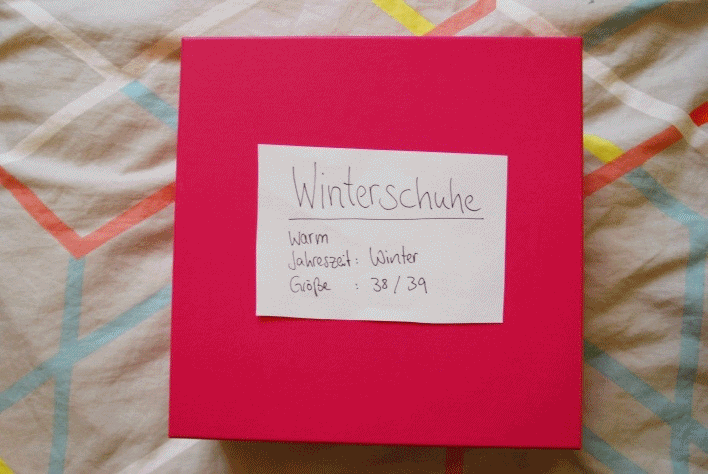 Winterschuhe
Warm
Jahreszeit: Winter
Größe : 38/39